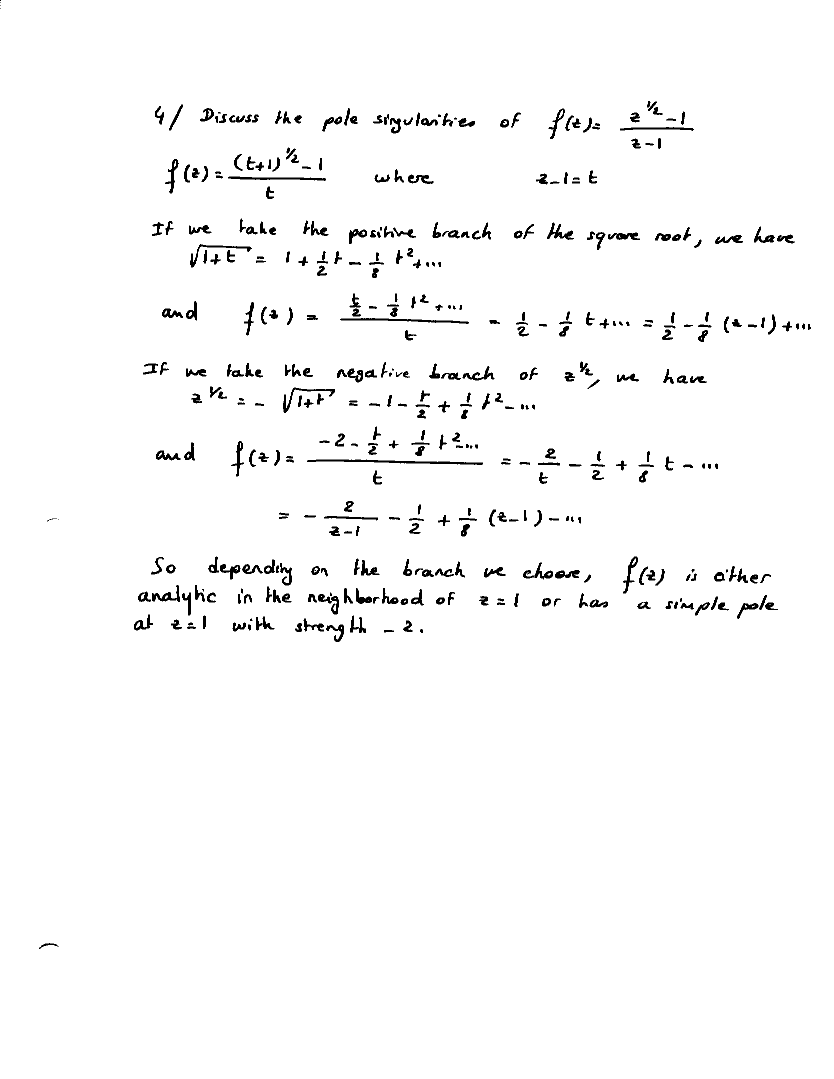 4/ Discuss the pole singularities of f(z) = (z^{1/2} - 1)/(z - 1)
f(z) = ((t+1)^{1/2} - 1)/t where z - 1 = t
If we take the positive branch of the square root, we have
√(1+t) = 1 + 1/2 t - 1/8 t² + ...
and f(z) = (t/2 - 1/8 t² + ...)/t = 1/2 - 1/8 t + ... = 1/2 - 1/8 (z-1) + ...
If we take the negative branch of z^{1/2}, we have
z^{1/2} = - √(1+t) = -1 - t/2 + 1/8 t² - ...
and f(z) = (-2 - t/2 + 1/8 t² ...)/t = - 2/t - 1/2 + 1/8 t - ...
= - 2/(z-1) - 1/2 + 1/8 (z-1) - ...
So depending on the branch we choose, f(z) is either
analytic in the neighborhood of z = 1 or has a simple pole
at z = 1 with strength - 2.